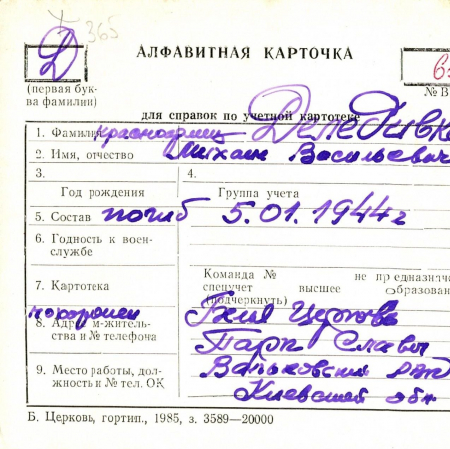 365
Д
АЛФАВИТНАЯ КАРТОЧКА
(первая бук-
ва фамилии)
№ В
для справок по учетной картотеке
1. Фамилия красноармеец
2. Имя, отчество Михаил Васильевич
3. 4.
Год рождения Группа учета
5. Состав погиб 5.01.1944г
6. Годность к воен-
службе
7. Картотека
Команда № не предназначе
спецучет высшее образован
(подчеркнуть)
похоронен Белая Церковь
8. Адр м-житель-
ства и № телефона
Парк Славы
9. Место работы, дол-
жность и № тел. ОК
Киевской обл
Б. Церковь, гортип., 1985, з. 3589—20000